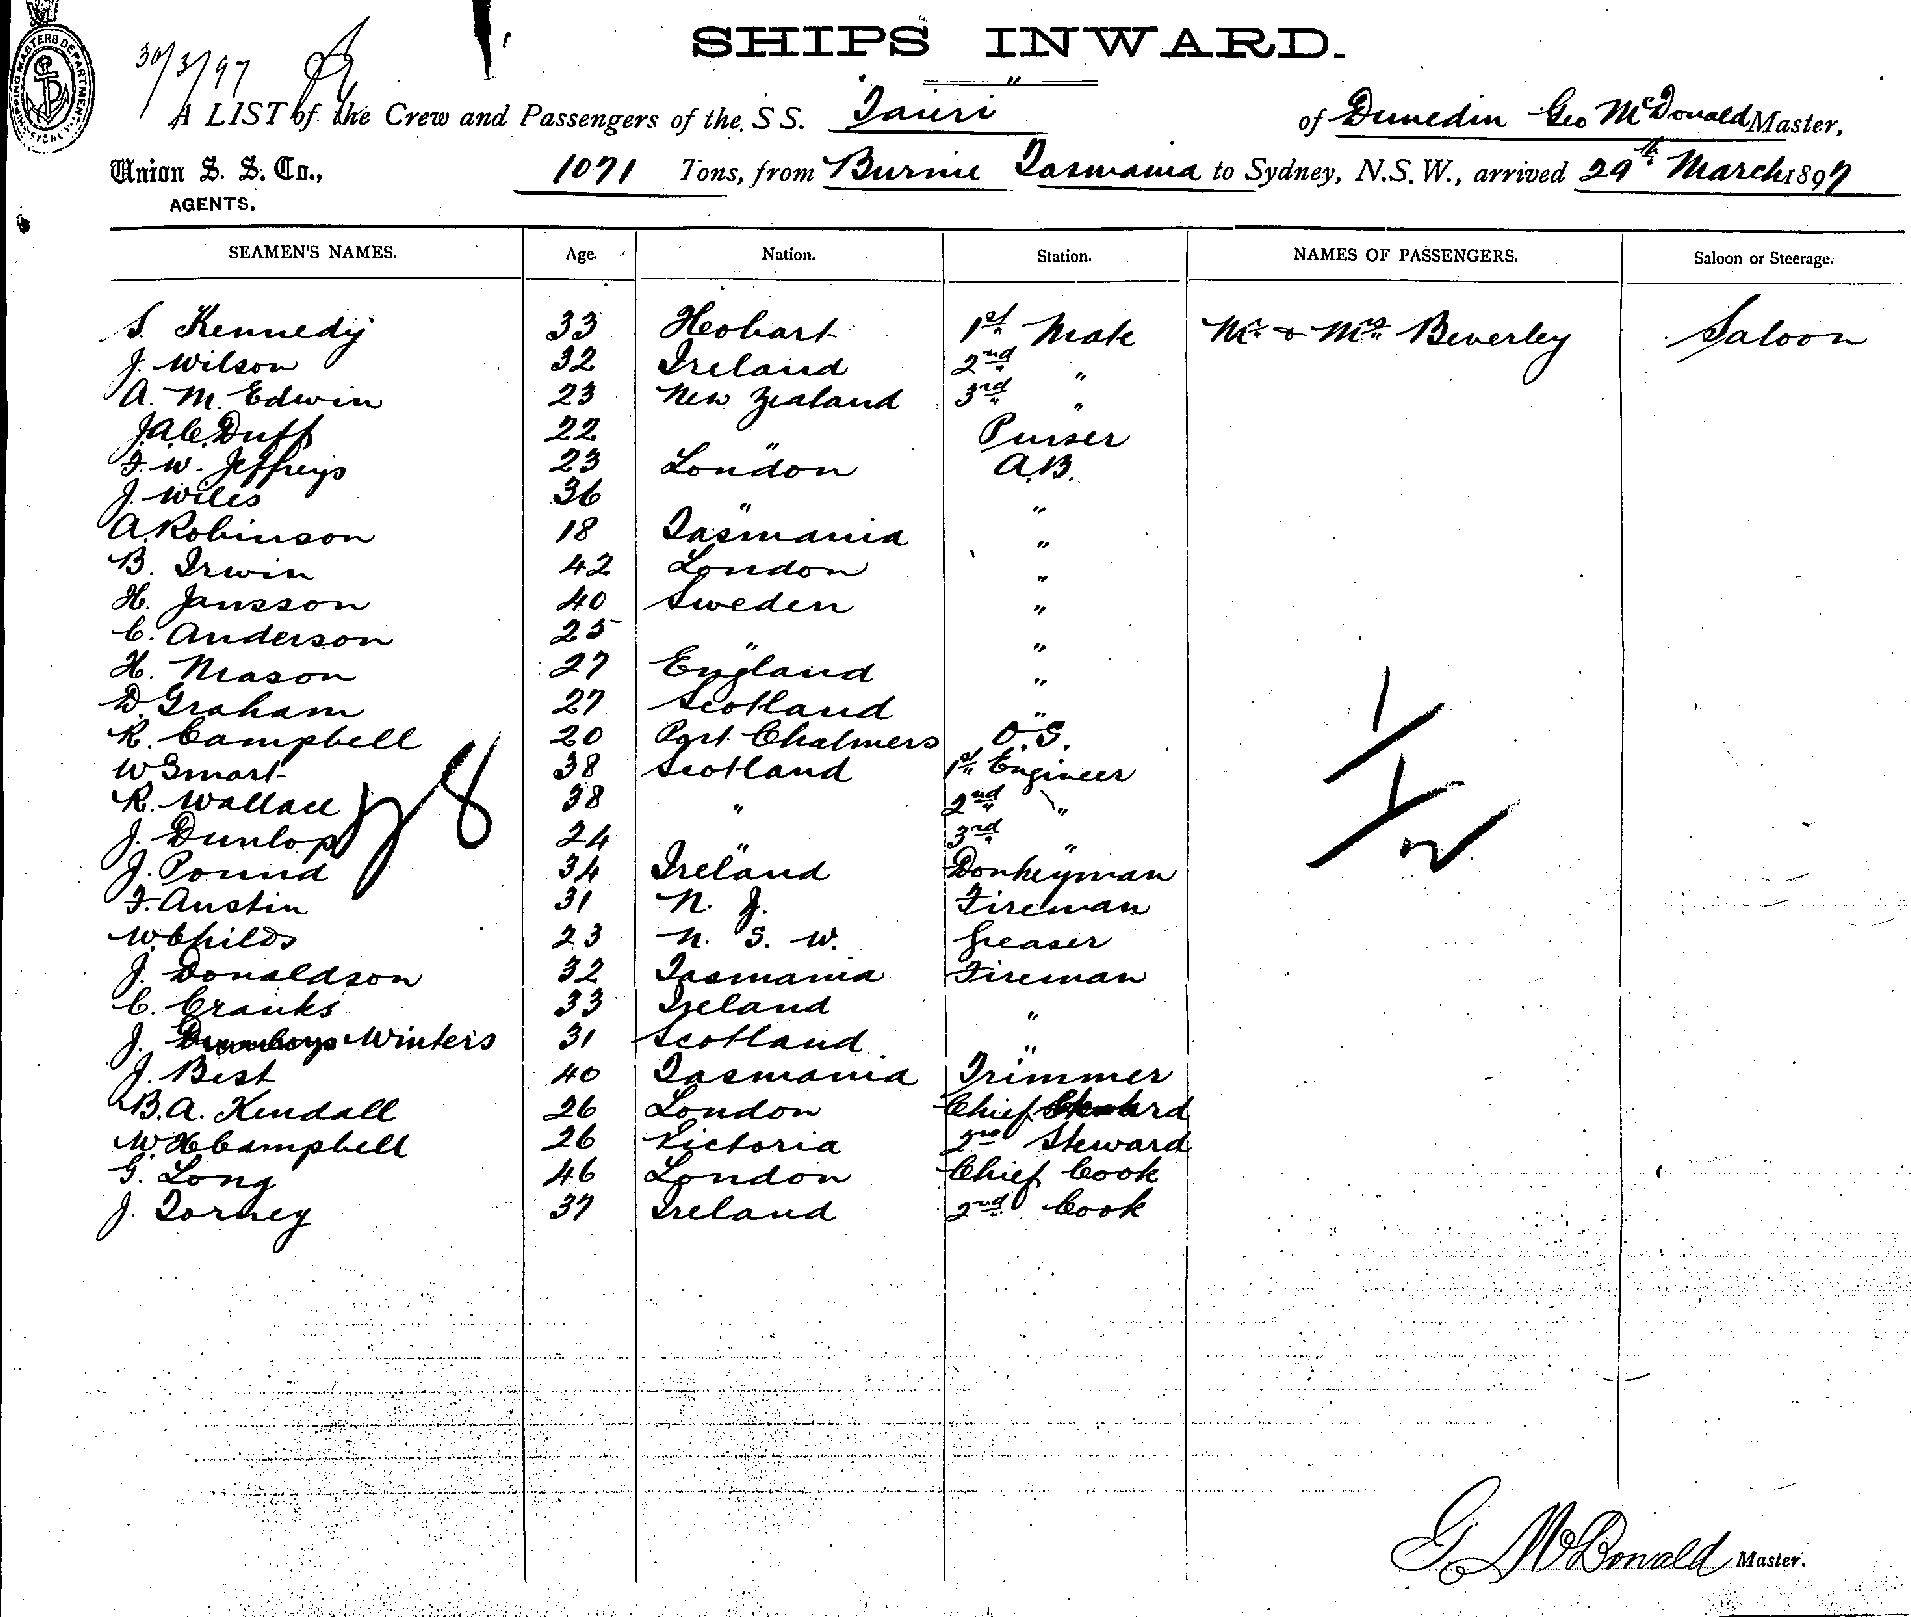 SHIPS INWARD.
30/3/97
A LIST of the Crew and Passengers of the SS. Taieri of Dunedin Geo McDonald Master,
Union S. S. Co., 1071 Tons, from Burnie Tasmania to Sydney, N.S.W., arrived 29th March 1897
AGENTS.
SEAMEN'S NAMES. Age. Nation. Station. NAMES OF PASSENGERS. Saloon or Steerage.
S. Kennedy 33 Hobart 1st Mate Mr & Mrs Beverley Saloon
J. Wilson 32 Ireland 2nd "
A. M. Edwin 23 New Zealand 3rd "
J.A.C. Duff 22 " Purser
F. W. Jeffreys 23 London A.B.
J. Wiles 36 " "
A. Robinson 18 Tasmania "
B. Irwin 42 London "
H. Jansson 40 Sweden "
C. Anderson 25 " "
H. Mason 27 England "
D. Graham 27 Scotland "
R. Campbell 20 Port Chalmers O.S.
W Smart 38 Scotland 1st Engineer
R. Wallace 38 " 2nd "
J. Dunlop 24 " 3rd "
J. Pound 34 Ireland Donkeyman
F. Austin 31 N. Z. Fireman
W. Childs 23 N. S. W. Greaser
J. Donaldson 32 Tasmania Fireman
C. Cranks 33 Ireland "
J. Winters 31 Scotland "
J. Best 40 Tasmania Trimmer
B. A. Kendall 26 London Chief
W. H Campbell 26 Victoria 2nd Steward
G. Long 46 London Chief Cook
J. Torney 37 Ireland 2nd Cook
28
1/1/2
G McDonald Master.